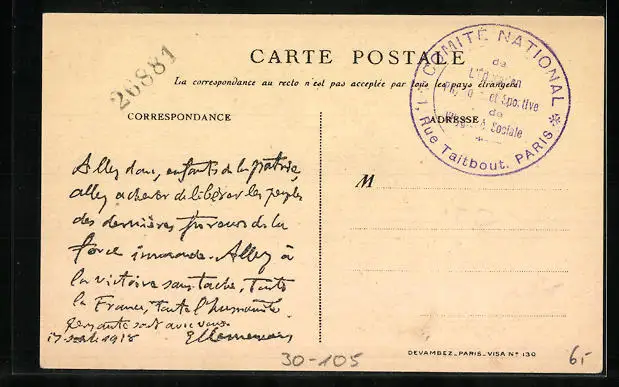 26881
CARTE POSTALE
La correspondance au recto n'est pas acceptée par tous les pays étrangers
COMITÉ NATIONAL
de
L'Education
Physique et Sportive
de
Hygiène Sociale
1, Rue Taitbout. PARIS
CORRESPONDANCE
ADRESSE
M
Allez donc, enfants de la patrie,
allez achever de libérer les peuples
des dernières fureurs de la
force immonde. Allez à
la victoire sans tache. Toute
la France, toute l'humanité
pensante sont avec vous.
17 sept 1918 GClemenceau
DEVAMBEZ_PARIS_VISA N° 130
30-105
6,-